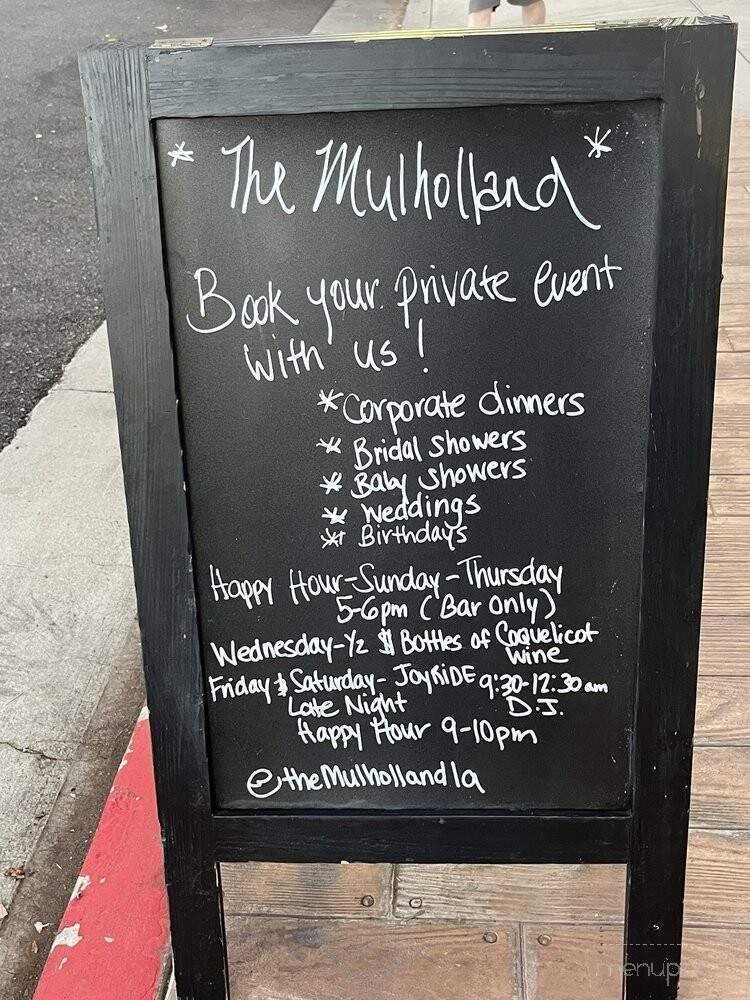 * The Mulholland *
Book your private event
with us!
* Corporate dinners
* Bridal showers
* Baby showers
* Weddings
* Birthdays
Happy Hour-Sunday-Thursday
5-6pm (Bar Only)
Wednesday-1/2 $ Bottles of Coquelicot
Wine
Friday & Saturday- JoyRiDE 9:30-12:30am
Late Night D.J.
Happy Hour 9-10pm
@theMulhollandla
menupix